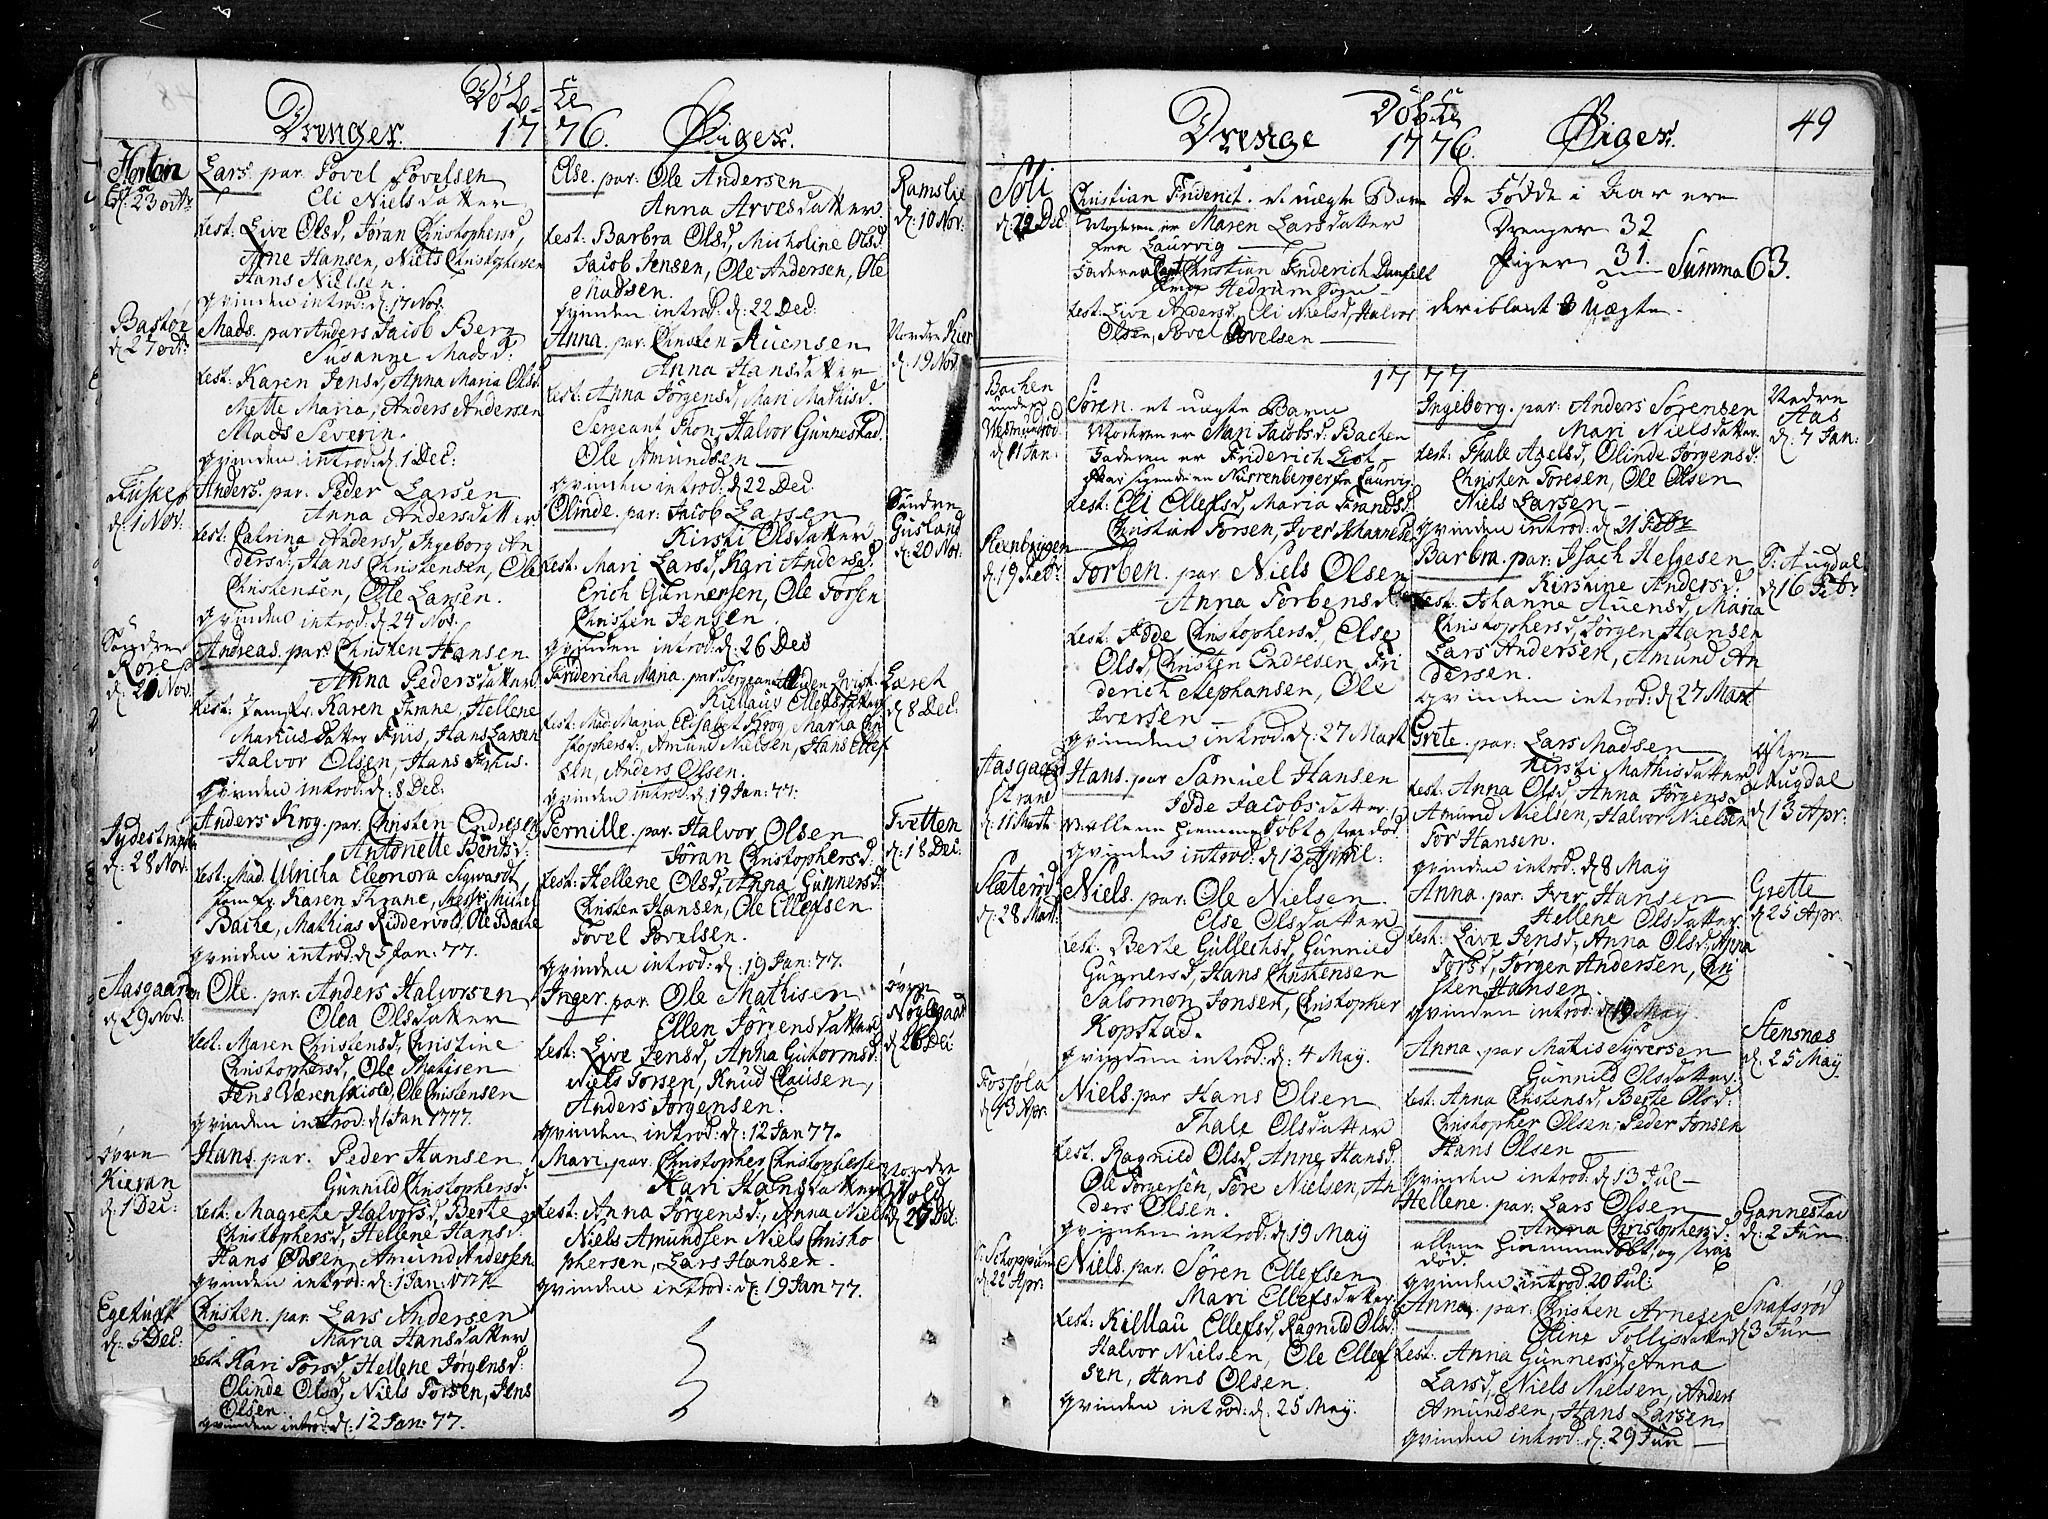 Døb-te
Drenger. 1776. Piger.
Horten
d. 23 octr
Lars. par. Povel Povelsen
Eli Nielsdatter
test: Live Olsd, Jøran Christophersd,
Arne Hansen, Niels Christophersen
Hans Nielsen.
qvinden introd: d. 17 Nov.
Bastøi
d. 27 octr:
Mads. par Anders Jacob Berg
Susanne Madsd:
test: Karen Jensd, Anna Maria Olsd.
Mette Maria, Anders Andersen
Mads Severin.
qvinden introd: d. 1 Dec:
d. 1 Nov.
Anders. par. Peder Larsen
Anna Andersdatter
test: Catrina Andersd, Ingeborg An
dersd, Hans Christensen, Ole
Christensen, Ole Larsen.
qvinden introd: d. 24 Nov.
Søndre
Rore
Nov.
Andreas. par. Christen Hansen
Anna Pedersdatter
test: Jomfr. Karen Thrane, Hellene
Marcus Datter Friis, Hans Larsen
Halvor Olsen, Hans
qvinden introd: d: 8 Dec:
d. 28 Nov.
Anders Krog. par. Christen Endresen
Antonette Bentsd:
test: Mad. Ulricha Eleonora Sigwardt
Jomfr. Karen Thrane, Messr. Michel
Bache, Mathias Riddervold, Ole Bache
qvinden introd: d 5 Jan: 77.
Aasgaarden
d. 29 Nov.
Ole. par. Anders Halvorsen
Olea Olsdatter
test: Maren Christensd, Christine
Christophersd, Ole Matisen
Jens Værenskiold, Ole Christensen
qvinden introd: d. 1 Jan 1777.
øvre
Kieran
d. 1 Dec:
Hans. par. Peder Hansen
Gunnild Christophersd.
test: Magrete Halvorsd, Berte
Christophersd, Hellene Hansd:
Hans Olsen, Amund Andersen
qvinden introd: d: 1 Jan: 1777
d. 5 Dec:
Christen. par. Lars Andersen
Maria Hansdatter
test Kari Torsd, Hellene Jørgensd:
Olinde Olsd, Niels Torsen, Jens
Olsen.
qvinden introd: d: 12 Jan: 77.
Else. par: Ole Andersen
Anna Arvesdatter
test: Barbra Olsd, Micholine Olsd
Jacob Jensen, Ole Andersen, Ole
Madsen.
qvinden introd: d: 22 Dec:
Ramslie
d. 10 Nov:
Anna. par. Christen Auensen
Anna Hansdatter
test: Anna Jørgensd, Mari Mathisd.
Sergeant Thon, Halvor Gunnestad.
Ole Amundsen
qvinden introd: d 22 Dec
Nordre Kier
d. 19 Nov.
Olinde. par: Jacob Larsen
Kirsti Olsdatter
test: Mari Larsd, Kari Andersd:
Erich Gunnersen, Ole Torsen
Christen Jensen.
qvinden introd: d: 26 Dec
Søndre
Gusland
d. 20 Nov:
Fridericha Maria. par. Sergeant
Killaug Ellefsdatter
test: Mad. Maria Elisabet Krog, Marha Chri
stophersd:, Amund Nielsen, Hans Ellef
sen, Anders Olsen.
qvinden introd: d: 19 Jan: 77:
d. 8 Dec:
Pernille. par. Halvor Olsen
Jøran Christophersd:
test: Hellene Olsd, Anna Gunnersd:
Christen Hansen, Ole Ellefsen
Povel Povelsen.
qvinden introd: d. 19 Jan: 77.
Tvetten
d: 18 Dec:
Inger. par. Ole Mathisen
Ellen Jørgensdatter
test: Live Jensd, Anna Gutormsd:
Niels Torsen, Knud Clausen,
Anders Jørgensen.
qvinden introd: d: 12 Jan 77.
øvre
d 26 Dec:
Mari. par. Christopher Christophersen
Kari Hansdatter
test: Anna Jørgensd:, Anna Nielsd
Niels Amundsen Niels Christo
phersen, Lars Hansen.
qvinden introd: d: 19 Jan 77.
Nordre
Wold
Døbte
Drenge 1776. Piger. 49
Søli
d. 22 Dec
Christian Friderich. et uægte Barn
Moderen er Maren Larsdatter
fra Laurvig
Faderen Capt. Christian Friderich
Hedrum Sogn
test: Live Andersd, Eli Nielsd, Halvor
Olsen, Povel Povelsen
De Fødde i Aar ere
Drenger 32
Piger 31. Summa 63.
deriblant uægte
1777
Bachen
under
d. 11 Jan.
Søren. et uægte Barn
Moderen er Mari Jacobsd: Bachen
Faderen er Friderich List
test: Eli Ellefsd, Maria Frandsd.
Christian Torsen, Iver Johannesen
d. 19 Febr:
Torben. par. Niels Olsen
Anna Torbensd.
test: Idde Christophersd, Else
Olsd, Christen Endresen, Fri
derich Stephansen, Ole
Iversen
qvinden introd: d. 27 Mart
Aasgaard
strand
d. 11 Marti
Hans. par Samuel Hansen
Idde Jacobsdatter
allene hiemmedøbt, strax død.
qvinden introd: d 13 April:
Slæterød
d. 28 Mart.
Niels. par. Ole Nielsen
Else Olsdatter
test: Berte Gullechsd, Gunnild
Gunnersd, Hans Christensen
Salomon Jonsen, Christopher
Kopstad.
qvinden introd: d: 4 May.
d. 13 Apr.
Niels. par Hans Olsen
Thale Olsdatter
test. Ragnild Olsd, Anne Hansd.
Ole Jørgensen, Tore Nielsen, An
ders Olsen.
qvinden introd: d. 19 May
Schoppum
d. 22 Apr:
Niels. par. Søren Ellefsen
Mari Ellefsdatter
test: Killau Ellefsd, Ragnild Olsd.
Halvor Nielsen, Ole Ellef
sen, Hans Olsen.
qvinden introd: d. 25 May.
Ingeborg. par: Anders Sørensen
Mari Nielsdatter
test: Thale Axelsd, Olinde Jørgensd:
Christen Toresen, Ole Olsen
Niels Larsen
qvinden introd: d. 21 Febr
Nedre
Aas
d. 7 Jan:
Barbra. par. Isach Helgesen
Kirstine Andersd:
test: Johanne Auensd, Maria
Christophersd, Jørgen Hansen
Lars Andersen, Amund An
dersen.
qvinden introd: d. 27 Mart
Augdal
d 16 Febr
Grete. par: Lars Madsen
Kirsti Mathisdatter
test: Anna Olsd, Anna Jørgensd
Amund Nielsen, Halvor Nielsen
Tor Hansen.
qvinden introd: d 8 May
østre
Augdal
d 13 Apr:
Anna. par. Iver Hansen
Hellene Olsdatter
test: Live Jensd, Anna Olsd, Anna
Torsd, Jørgen Andersen, Chri
sten Hansen.
qvinden introd: d 19 May
Grette
d 25 Apr.
Anna. par Matis Syversen
Gunnild Olsdatter.
test: Anna Christensd, Berte Olsd:
Christopher Olsen, Peder Jonsen
Hans Olsen
qvinden introd: d 13 Jul
Stensnæs
d. 25 May
Hellene. par: Lars Olsen
Anna Christophersd:
allene hiemmedøbt, og strax
død.
qvinden introd. 20 Jul:
Gannestad
d: 2 Jun
Anna. par. Christen Arnesen
Oline Tollisdatter
test: Anna Gunnersd, Anna
Larsd, Niels Nielsen, Anders
Amundsen, Hans Larsen
qvinden introd: d: 29 Jun
Snafsrød
d 3 Jun